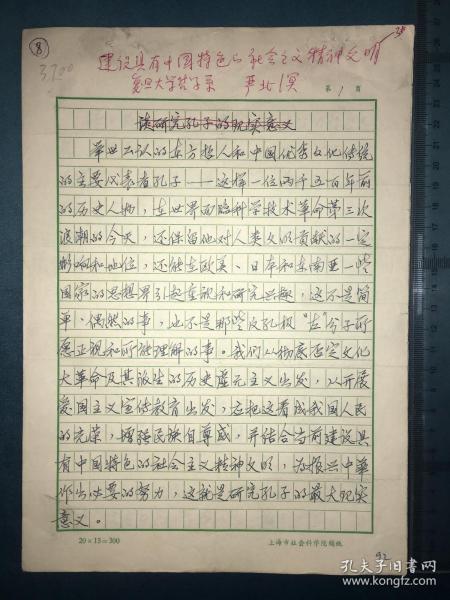 ⑧
3700
建设具有中国特色的社会主义精神文明
复旦大学哲学系 严北溟
第 1 页
谈研究孔子的现实意义
举世公认的东方哲人和中国优秀文化传统
的主要代表者孔子——这样一位两千五百年前
的历史人物，在世界面临科学技术革命第三次
浪潮的今天，还保留他对人类文明贡献的一定
影响和地位，还能在欧美、日本和东南亚一些
国家的思想界引起重视和研究兴趣，这不是简
单、偶然的事，也不是那些反孔极“左”分子所
愿正视和所能理解的事。我们从彻底否定文化
大革命及其派生的历史虚无主义出发，从开展
爱国主义宣传教育出发，应把这看成我国人民
的光荣，增强民族自尊感，并结合当前建设具
有中国特色的社会主义精神文明，为振兴中华
作出必要的努力，这就是研究孔子的最大现实
意义。
20×15=300
上海市社会科学院稿纸
92
孔夫子旧书网
www.kongfz.com